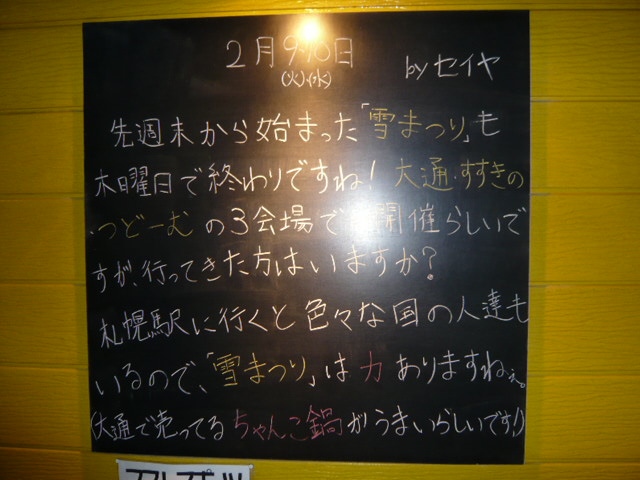 2月9・10日
(火)・(水)
by セイヤ
先週末から始まった「雪まつり」も
木曜日で終わりですね! 大通・すすきの
・つどーむの3会場で開催らしいで
すが、行ってきた方はいますか?
札幌駅に行くと色々な国の人達も
いるので、「雪まつり」は力ありますねぇ。
(大通で売ってるちゃんこ鍋がうまいらしいです!)